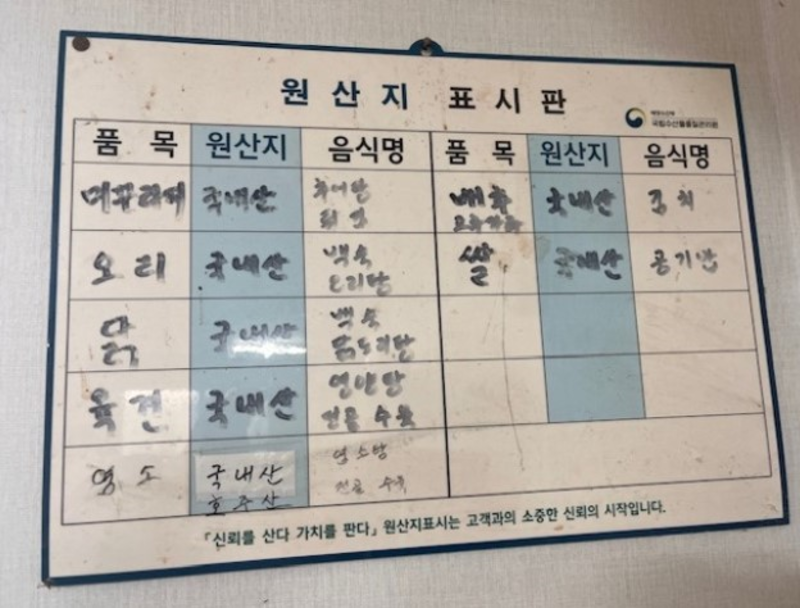 원산지 표시판
국립농산물품질관리원
품목 원산지 음식명 품목 원산지 음식명
미꾸라지 국내산 추어탕 배추 국내산 김치
고추가루
오리 국내산 백숙 쌀 국내산 공기밥
오리탕
닭 국내산 백숙
닭도리탕
육견 국내산 영양탕
전골 수육
염소 국내산 염소탕
호주산 전골 수육
「신뢰를 산다 가치를 판다」 원산지표시는 고객과의 소중한 신뢰의 시작입니다.